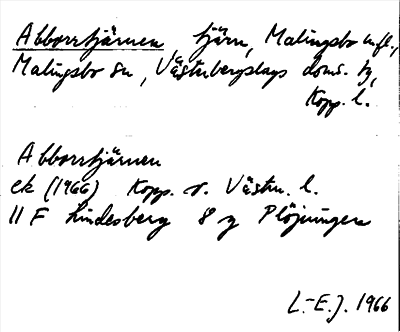 Abborrtjärnen tjärn, Malingsbo m.fl.,
Malingsbo sn, Västerbergslags doms. tg,
Kopp. l.
Abborrtjärnen
ek (1966) Kopp. o. Västm. l.
11 F Lindesberg 8 g Plöjningen
L.-E.J. 1966